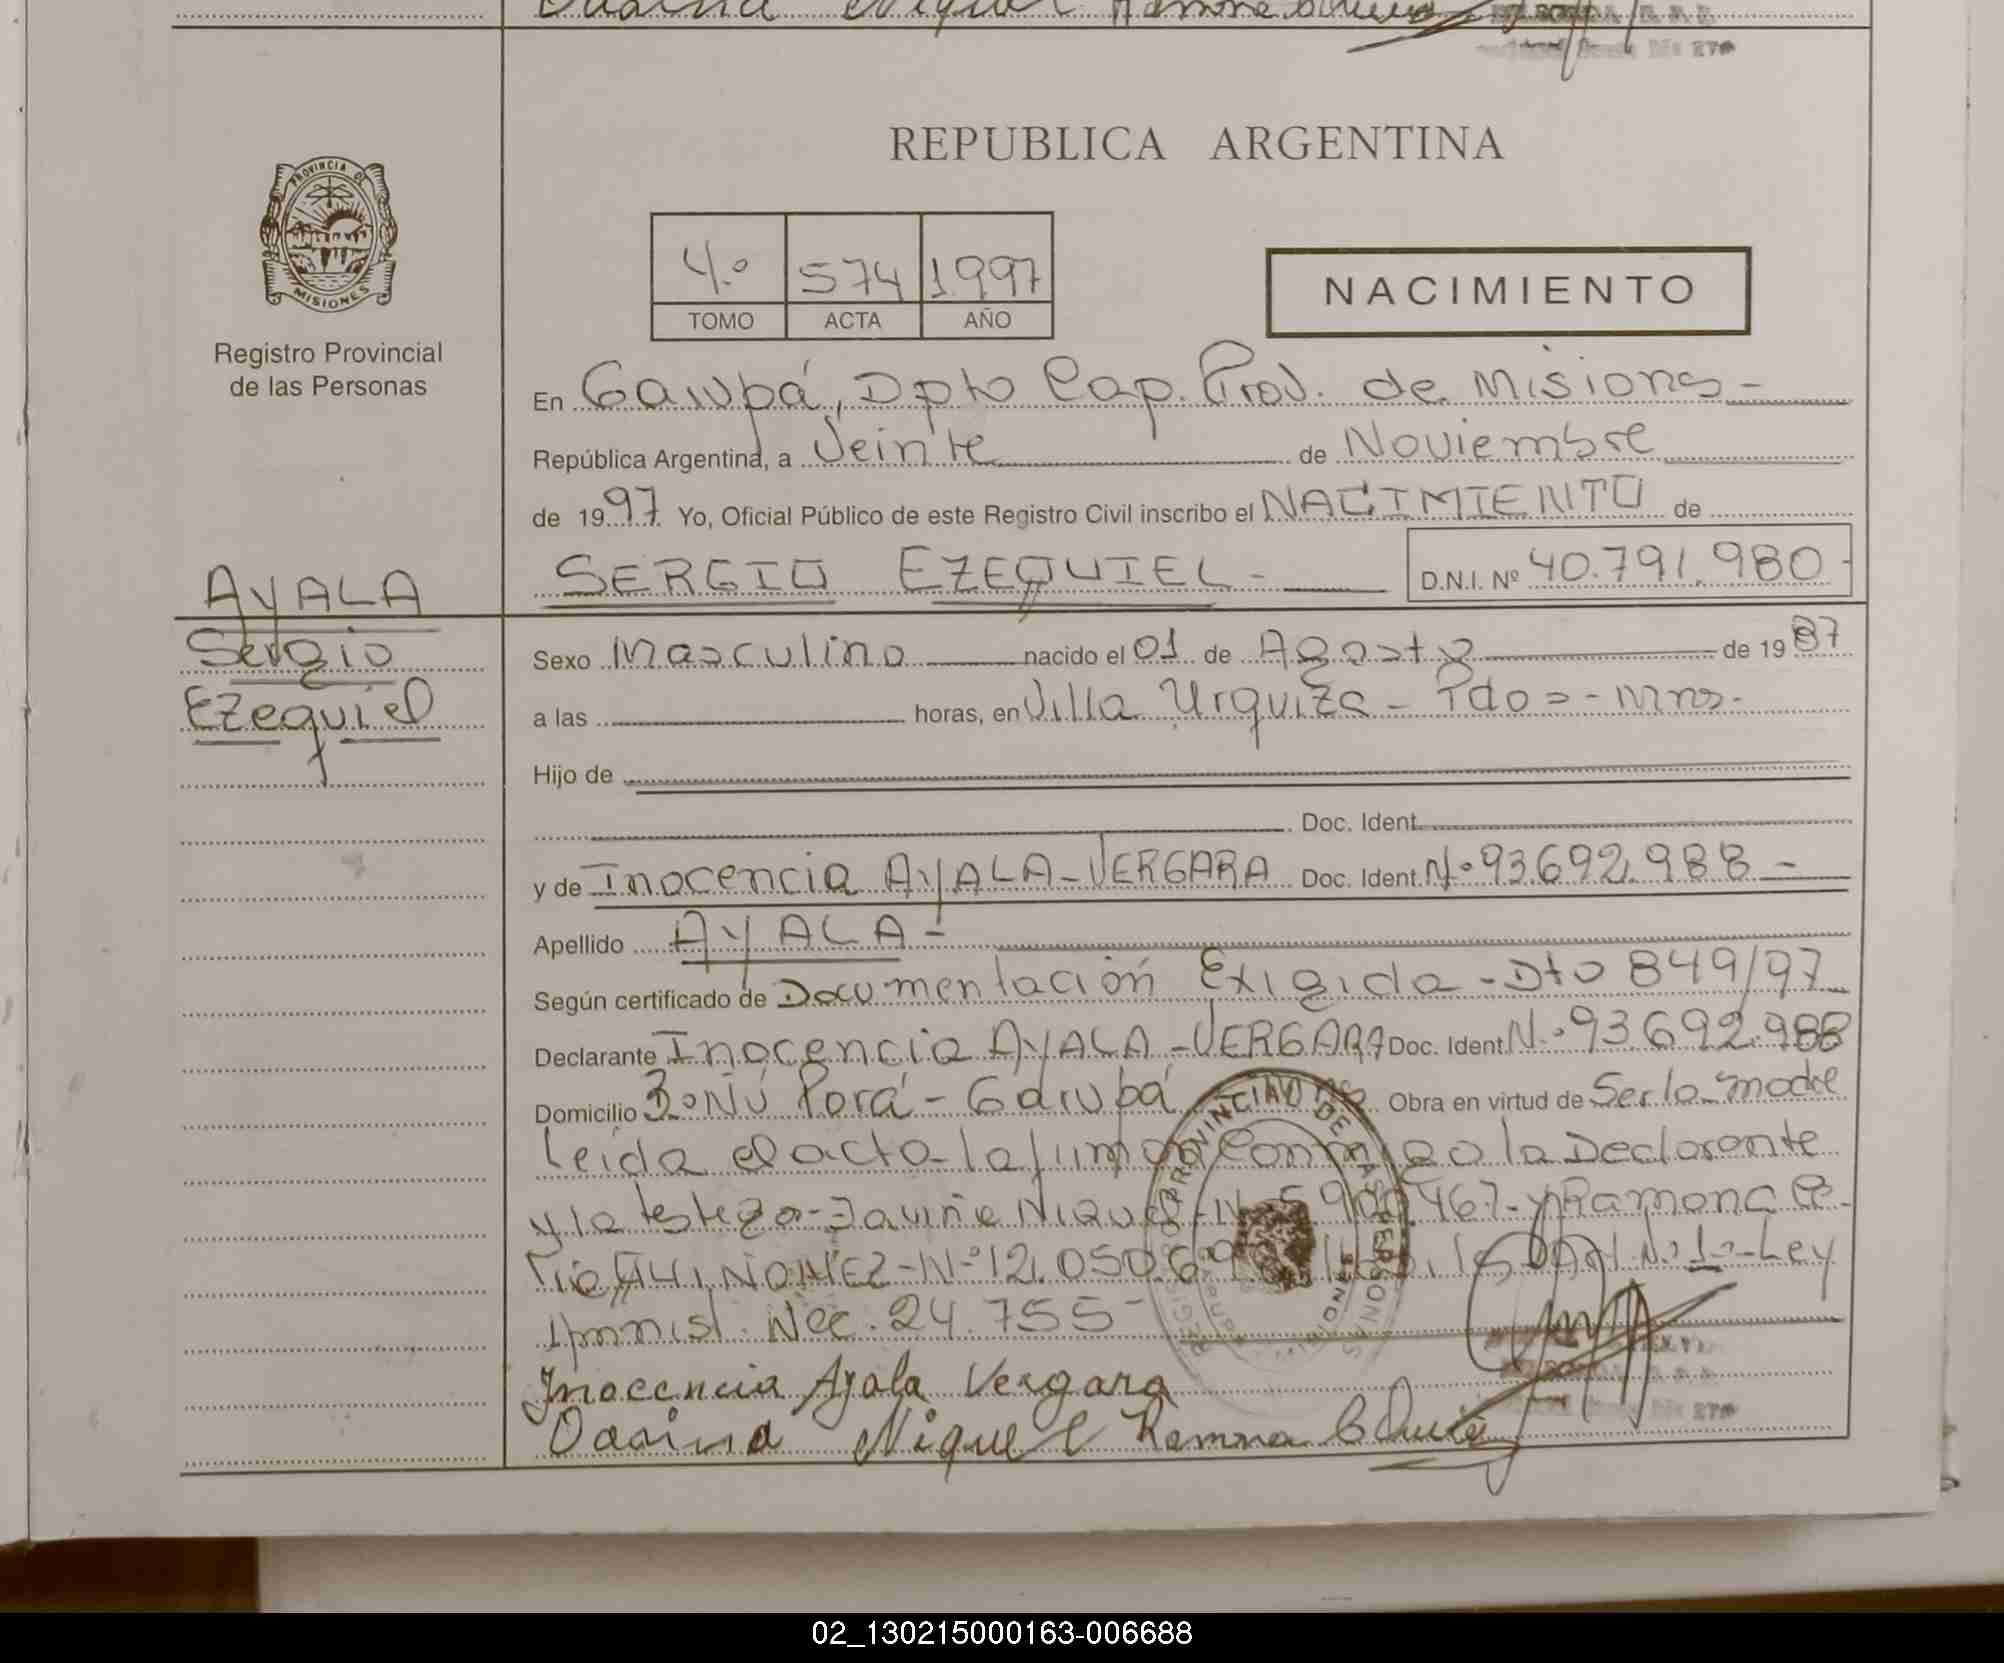 REPUBLICA ARGENTINA
PROVINCIA DE
MISIONES
Registro Provincial
de las Personas
4.º 574 1.997
TOMO ACTA AÑO
NACIMIENTO
En Garupá, Dpto Cap. Prov. de Misiones -
República Argentina, a Veinte de Noviembre
de 1997. Yo, Oficial Público de este Registro Civil inscribo el NACIMIENTO de
AYALA
Sergio
Ezequiel
SERGIO EZEQUIEL - D.N.I. Nº 40.791.980-
Sexo Masculino nacido el 01 de Agosto de 1987
a las horas, en Villa Urquiza - Pdas - Mnes.
Hijo de
Doc. Ident.
y de Inocencia AYALA-VERGARA Doc. Ident. Nº 93.692.988 -
Apellido AYALA -
Según certificado de Documentación Exigida - Dto 849/97
Declarante Inocencia AYALA - VERGARA Doc. Ident. Nº 93.692.988
Domicilio Bº Ñú Porá - Garupá Obra en virtud de Ser la madre
Leida el acta la firman conmigo la Declarante
y la testigo - Niquel 467 - y Ramona
Nº 12.050.6 Nº 1 - Ley
Nec. 24.755 -
Inocencia Ayala Vergara
Niquel Ramona
02_130215000163-006688